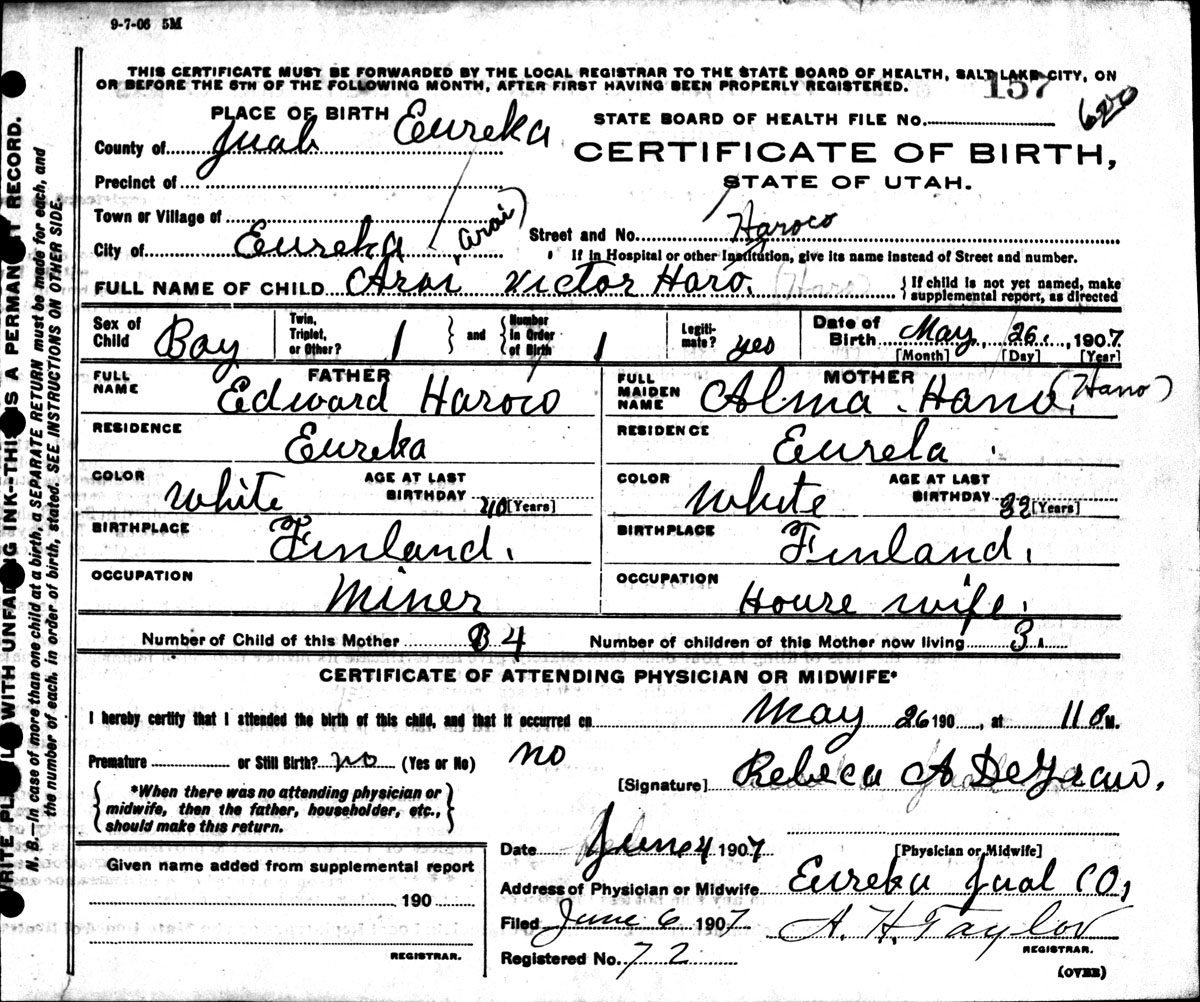 9-7-06 5M
THIS CERTIFICATE MUST BE FORWARDED BY THE LOCAL REGISTRAR TO THE STATE BOARD OF HEALTH, SALT LAKE CITY, ON
OR BEFORE THE 5TH OF THE FOLLOWING MONTH, AFTER FIRST HAVING BEEN PROPERLY REGISTERED.
157
620
PLACE OF BIRTH Eureka
STATE BOARD OF HEALTH FILE NO.
County of Juab
CERTIFICATE OF BIRTH,
STATE OF UTAH.
Precinct of
Town or Village of
City of Eureka (Arai)
Street and No. Haroco
If in Hospital or other Institution, give its name instead of Street and number.
FULL NAME OF CHILD Arai Victor Haro. (Haro)
If child is not yet named, make supplemental report, as directed
Sex of Child Boy
Twin, Triplet, or Other? 1 and Number in Order of Birth 1
Legitimate? yes
Date of Birth May 26. 1907
[Month] [Day] [Year]
FATHER
FULL NAME Edward Haroco
RESIDENCE Eureka
COLOR White AGE AT LAST BIRTHDAY 40 [Years]
BIRTHPLACE Finland.
OCCUPATION Miner
MOTHER
FULL MAIDEN NAME Alma Hano. (Hano)
RESIDENCE Eurela.
COLOR White AGE AT LAST BIRTHDAY 32 [Years]
BIRTHPLACE Finland.
OCCUPATION House wife.
Number of Child of this Mother 4
Number of children of this Mother now living 3.
CERTIFICATE OF ATTENDING PHYSICIAN OR MIDWIFE*
I hereby certify that I attended the birth of this child, and that it occurred on May 26 190 , at 11 M.
Premature or Still Birth? no (Yes or No) no
[Signature] Rebeca A
*When there was no attending physician or
midwife, then the father, householder, etc.,
should make this return.
Date June 4 1907
[Physician or Midwife]
Given name added from supplemental report
190
REGISTRAR.
Address of Physician or Midwife Eureka Jual CO,
Filed June 6 1907 A. H. Taylor
REGISTRAR.
Registered No. 72
(OVER)
WRITE PLAINLY WITH UNFADING INK--THIS IS A PERMANENT RECORD.
N. B.—In case of more than one child at a birth, a SEPARATE RETURN must be made for each, and
the number of each, in order of birth, stated. SEE INSTRUCTIONS ON OTHER SIDE.